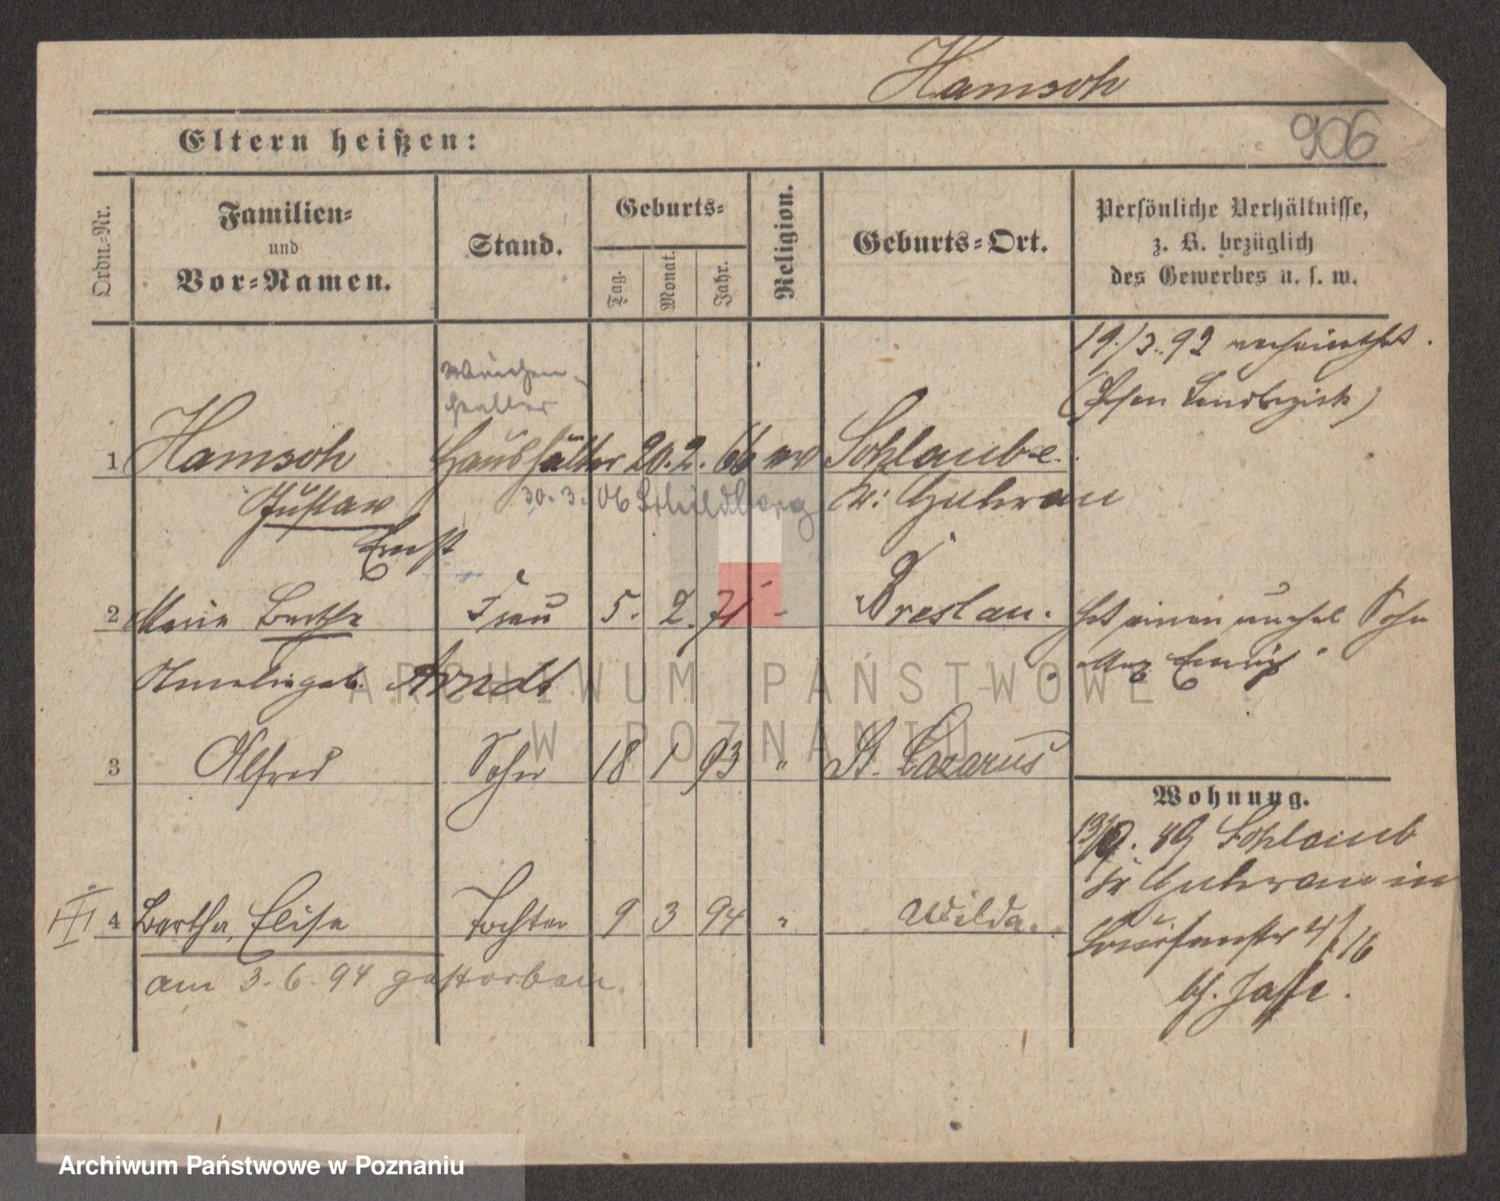 Hamsch
906
Eltern heißen:
Ordn.-Nr.
Familien-
und
Vor-Namen.
Stand.
Geburts-
Tag.
Monat.
Jahr.
Religion.
Geburts-Ort.
Persönliche Verhältnisse,
z. B. bezüglich
des Gewerbes u. s. w.
19./3. 92 verheirathet.
(Posen Landbezirk)
Weichen-
steller
1 Hamsch Haushälter 20. 2. 66 ev Schlaube
Gustav 30. 3. 06 Schildberg Kr: Guhrau
Ernst
2 Marie Bertha Frau 5. 2. 71 - Breslau. hat einen unehel Sohn
geb. Arndt
3 Alfred Sohn 18 1 93 " St. Lazarus
Wohnung.
13/9. 89 Schlaub
Kr Guhrau in
4 Bertha, Elise Tochter 9 3 94 " Wilda.
4/16
am 3. 6. 94 gestorben.
bh. Jaffe.
ARCHIWUM PAŃSTWOWE
W POZNANIU
Archiwum Państwowe w Poznaniu